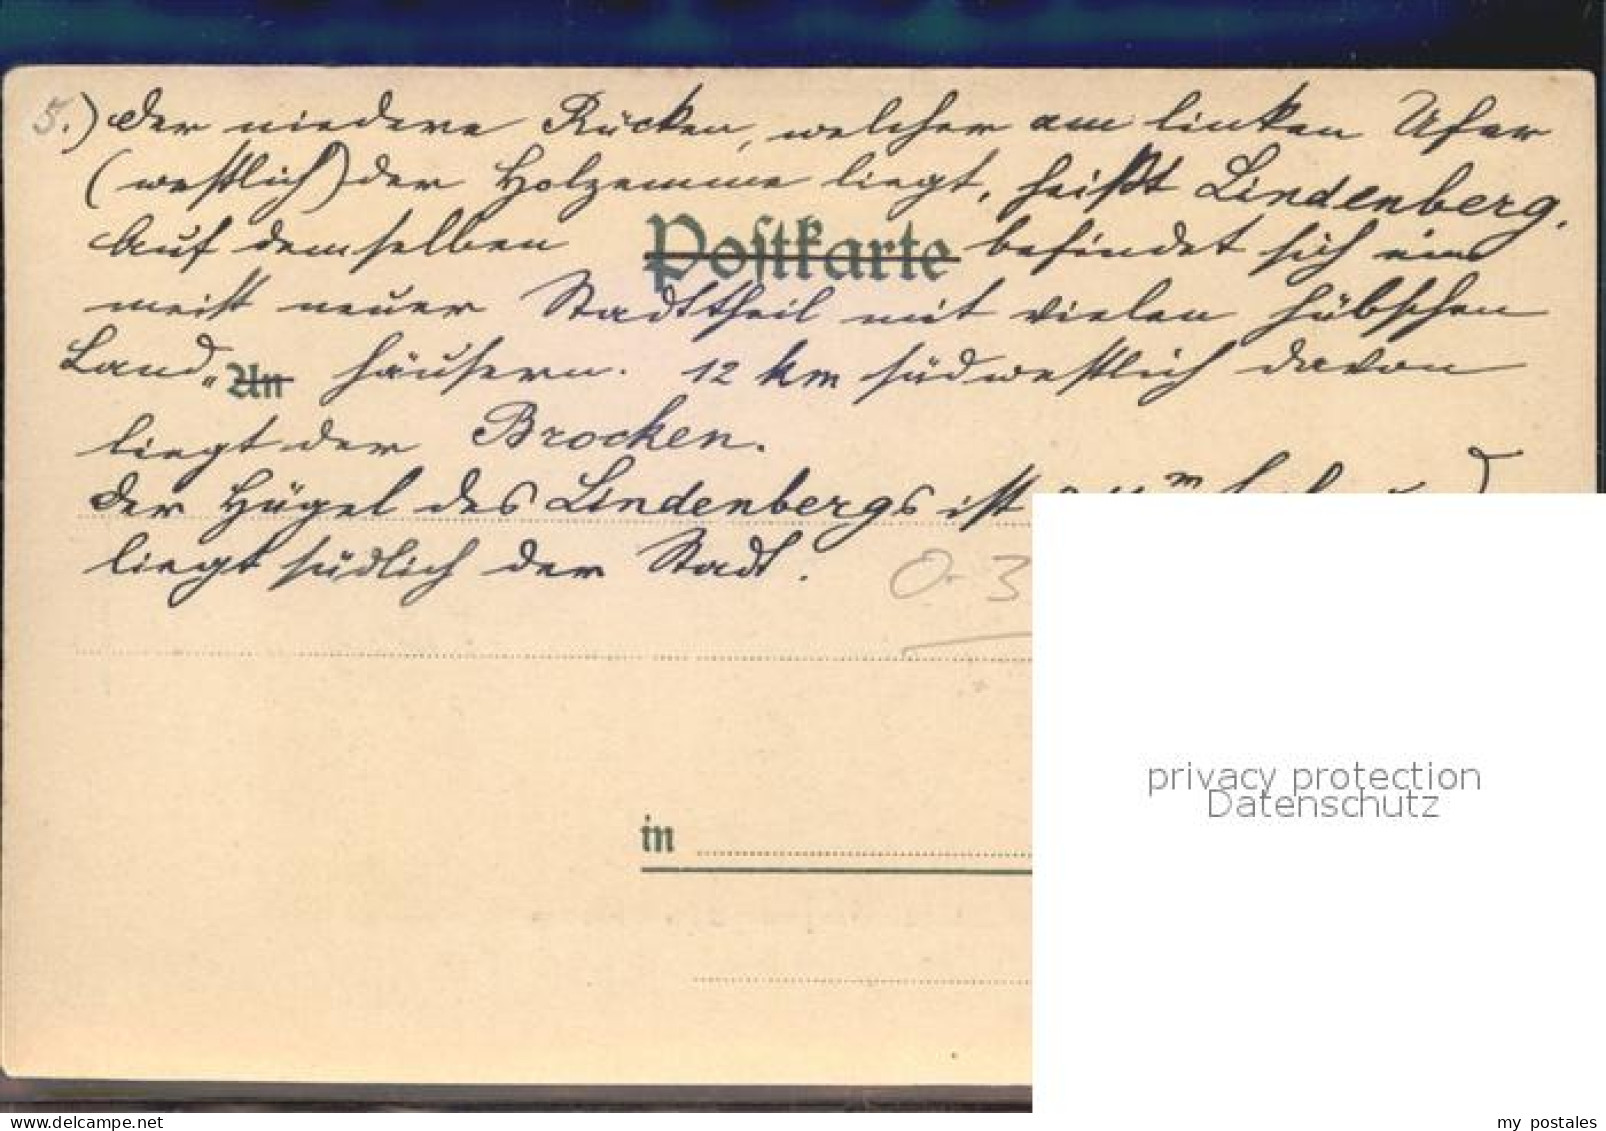 5.) Der niedere Rücken, welcher am linken Ufer
(westlich) der Holzemme liegt, heißt Lindenberg.
Auf demselben Postkarte befindet sich ein
meist neuer Stadttheil mit vielen hübschen
Land„ An häusern. 12 km südwestlich davon
liegt der Brocken.
Der Hügel des Lindenbergs ist m hoch und
liegt südlich der Stadt.
O-3
in
privacy protection
Datenschutz
delcampe.net
my_postales